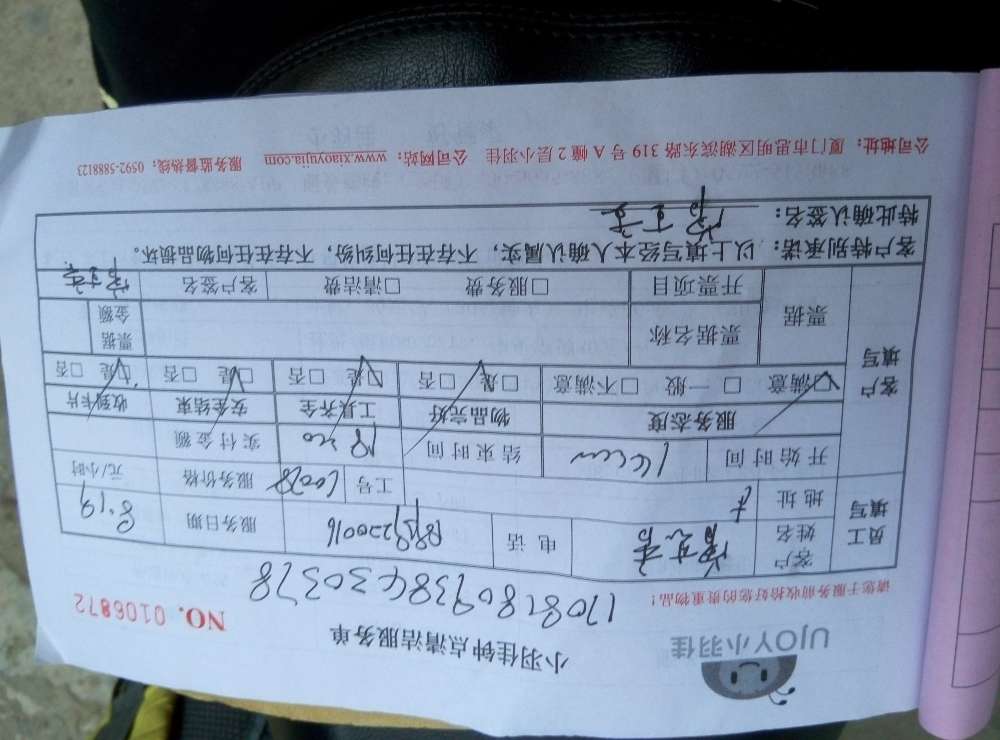 UJOY小羽佳
小羽佳钟点清洁服务单
NO. 0106872
请您于服务前收拾好您的贵重物品！
员工填写 客户姓名 电话 服务日期 8.19
地址 工号 服务价格 元/小时
客户填写 开始时间 结束时间 实付金额
服务态度 物品完好 工具齐全 安全结束 收到卡片
□满意 □一般 □不满意 □是 □否 □是 □否 □是 □否 □是 □否
票据 票据名称 票据金额
开票项目 □服务费 □清洁费 客户签名
客户特别承诺：以上填写经本人确认属实，不存在任何纠纷，不存在任何物品损坏。
特此确认签名：
公司地址：厦门市思明区湖滨东路 319 号 A 幢 2 层小羽佳 公司网站：www.xiaoyujia.com 服务监督热线：0592-5888123